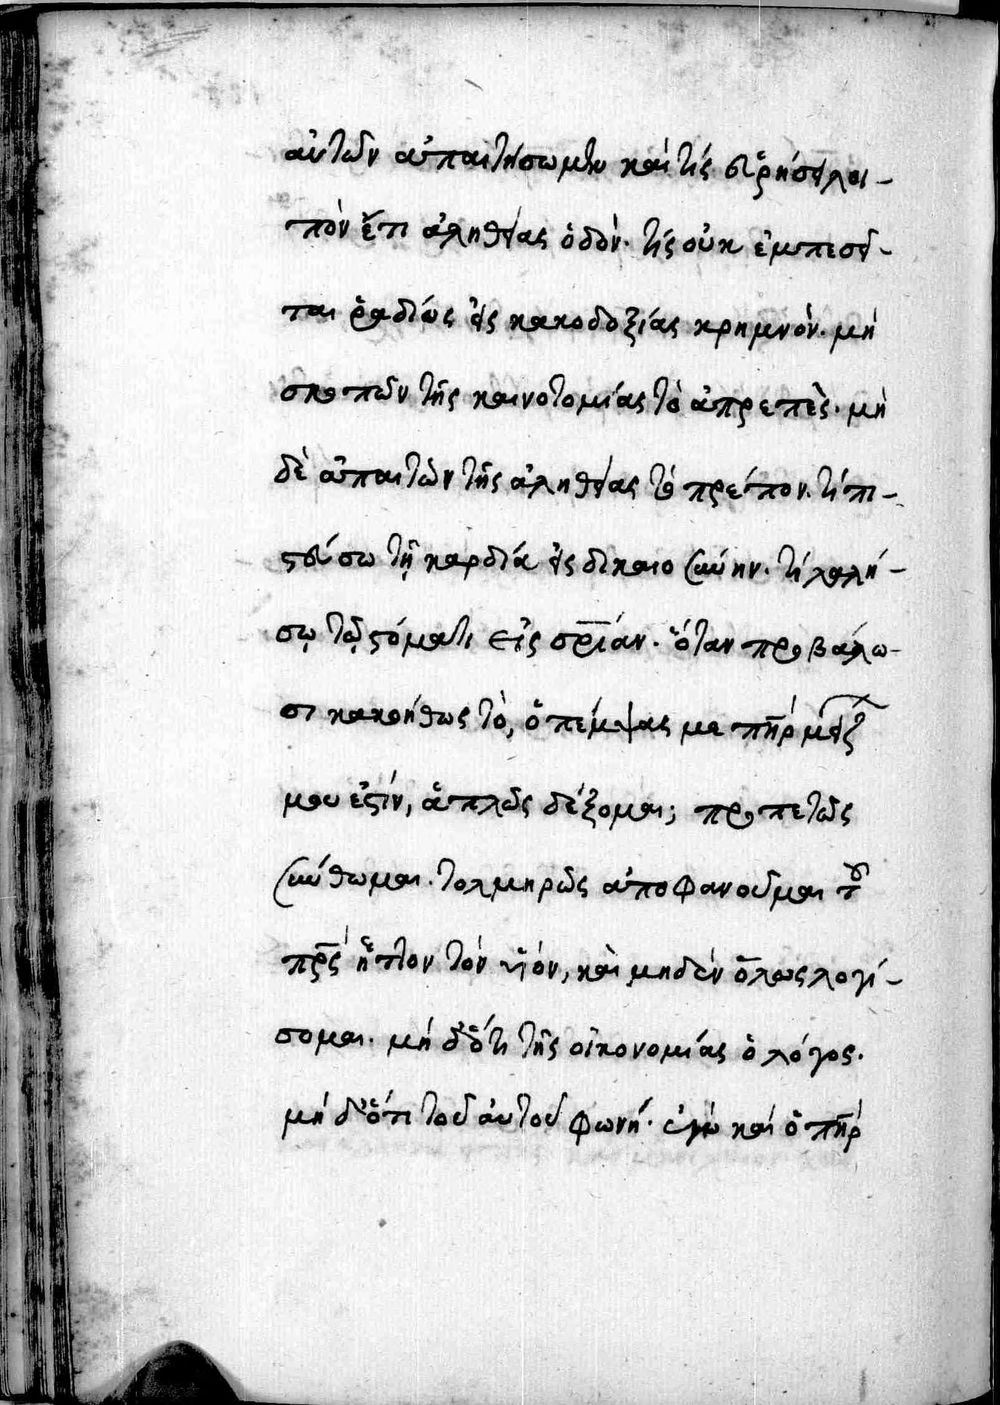 αὐτῶν ἀπαιτήσωμεν καὶ τίς εὑρήσει λοι-
πὸν ἔτι ἀληθείας ὁδόν. τίς οὐκ ἐμπεσεῖ-
ται ῥαδίως εἰς κακοδοξίας κρημνόν. μὴ
σκοπῶν τῆς καινοτομίας τὸ ἀπρεπὲς. μὴ
δὲ ἀπαιτῶν τῆς ἀληθείας τὸ πρέπον. τί πι-
στεύσω τῇ καρδίᾳ εἰς δικαιοσύνην. τί λαλή-
σω τῷ στόματι εἰς σρίαν. ὅταν προβάλω-
σι κακοήθως τὸ, ὁ πέμψας με πηρ μείζων
μου ἐστίν, ἁπλῶς δέξομαι; προπετῶς
συνθωμαι. τολμηρῶς ἀποφανοῦμαι τοῦ
πρς ἧττον τὸν υἱόν, καὶ μηδὲν ὅλως λογί-
σομαι. μὴ δ' ὅτι τῆς οἰκονομίας ὁ λόγος.
μὴ δ' ὅτι τοῦ αὐτοῦ φωνή. ἐγὼ καὶ ὁ πηρ